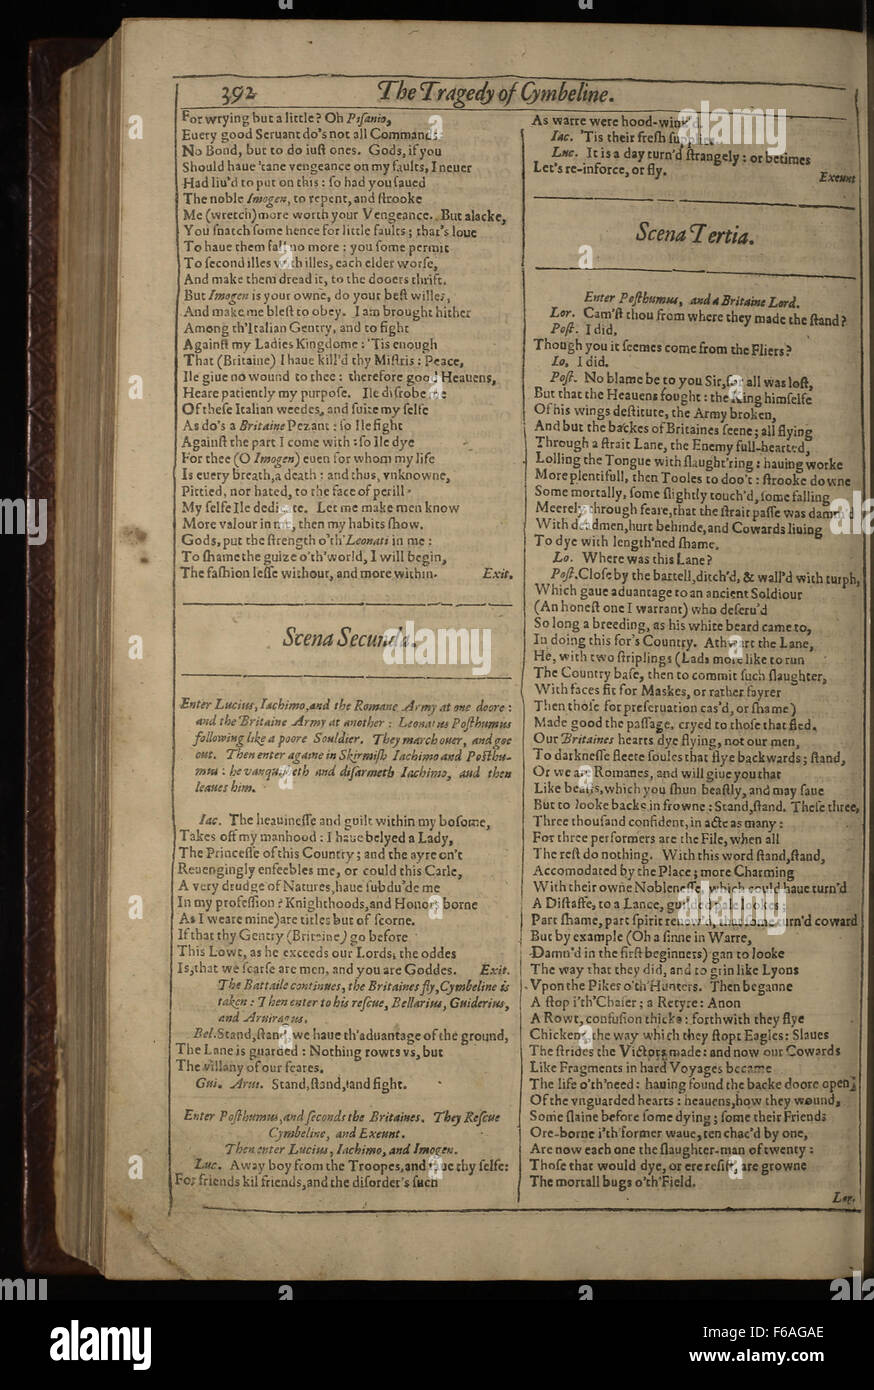 392 The Tragedy of Cymbeline.
For wrying but a little? Oh Pisanio,
Euery good Seruant do's not all Commands:
No Bond, but to do iust ones. Gods, if you
Should haue 'tane vengeance on my faults, I neuer
Had liu'd to put on this: so had you saued
The noble Imogen, to repent, and strooke
Me (wretch) more worth your Vengeance. But alacke,
You snatch some hence for little faults; that's loue
To haue them fall no more: you some permit
To second illes with illes, each elder worse,
And make them dread it, to the dooers thrift.
But Imogen is your owne, do your best willes,
And make me blest to obey. I am brought hither
Among th'Italian Gentry, and to fight
Against my Ladies Kingdome: 'Tis enough
That (Britaine) I haue kill'd thy Mistris: Peace,
Ile giue no wound to thee: therefore good Heauens,
Heare patiently my purpose. Ile disrobe me
Of these Italian weedes, and suite my selfe
As do's a Britaine Pezant: so Ile fight
Against the part I come with: so Ile dye
For thee (O Imogen) euen for whom my life
Is euery breath, a death: and thus, vnknowne,
Pittied, nor hated, to the face of perill
My selfe Ile dedicate. Let me make men know
More valour in me, then my habits show.
Gods, put the strength o'th'Leonati in me:
To shame the guize o'th'world, I will begin,
The fashion lesse without, and more within. Exit.
Scena Secunda.
Enter Lucius, Iachimo, and the Romane Army at one doore:
and the Britaine Army at another: Leonatus Posthumus
following like a poore Souldier. They march ouer, and goe
out. Then enter againe in Skirmish Iachimo and Posthu-
mus: he vanquisheth and disarmeth Iachimo, and then
leaues him.
Iac. The heauinesse and guilt within my bosome,
Takes off my manhood: I haue belyed a Lady,
The Princesse of this Country; and the ayre on't
Reuengingly enfeebles me, or could this Carle,
A very drudge of Natures, haue subdu'de me
In my profession? Knighthoods, and Honors borne
As I weare mine) are titles but of scorne.
If that thy Gentry (Britaine) go before
This Lowt, as he exceeds our Lords, the oddes
Is, that we scarse are men, and you are Goddes. Exit.
The Battaile continues, the Britaines fly, Cymbeline is
taken: Then enter to his rescue, Bellarius, Guiderius,
and Aruiragus.
Bel. Stand, stand, we haue th'aduantage of the ground,
The Lane is guarded: Nothing rowts vs, but
The villany of our feares.
Gui. Arui. Stand, stand, and fight.
Enter Posthumus, and seconds the Britaines. They Rescue
Cymbeline, and Exeunt.
Then enter Lucius, Iachimo, and Imogen.
Luc. Away boy from the Troopes, and saue thy selfe:
For friends kil friends, and the disorder's such
As warre were hood-wink'd.
Iac. 'Tis their fresh supplies.
Luc. It is a day turn'd strangely: or betimes
Let's re-inforce, or fly. Exeunt
Scena Tertia.
Enter Posthumus, and a Britaine Lord.
Lor. Cam'st thou from where they made the stand?
Post. I did,
Though you it seemes come from the Fliers?
Lo. I did.
Post. No blame be to you Sir, for all was lost,
But that the Heauens fought: the King himselfe
Of his wings destitute, the Army broken,
And but the backes of Britaines seene; all flying
Through a strait Lane, the Enemy full-hearted,
Lolling the Tongue with slaught'ring: hauing worke
More plentifull, then Tooles to doo't: strooke downe
Some mortally, some slightly touch'd, some falling
Meerely through feare, that the strait passe was damm'd
With deadmen, hurt behinde, and Cowards liuing
To dye with length'ned shame.
Lo. Where was this Lane?
Post. Close by the battell, ditch'd, & wall'd with turph,
Which gaue aduantage to an ancient Soldiour
(An honest one I warrant) who deseru'd
So long a breeding, as his white beard came to,
In doing this for's Country. Athwart the Lane,
He, with two striplings (Lads more like to run
The Country base, then to commit such slaughter,
With faces fit for Maskes, or rather fayrer
Then those for preseruation cas'd, or shame)
Made good the passage, cryed to those that fled.
Our Britaines hearts dye flying, not our men,
To darknesse fleete soules that flye backwards; stand,
Or we are Romanes, and will giue you that
Like beasts, which you shun beastly, and may saue
But to looke backe in frowne: Stand, stand. These three,
Three thousand confident, in acte as many:
For three performers are the File, when all
The rest do nothing. With this word stand, stand,
Accomodated by the Place; more Charming
With their owne Noblenesse, which could haue turn'd
A Distaffe, to a Lance, guilded pale lookes;
Part shame, part spirit renew'd, that some turn'd coward
But by example (Oh a sinne in Warre,
Damn'd in the first beginners) gan to looke
The way that they did, and to grin like Lyons
Vpon the Pikes o'th'Hunters. Then beganne
A stop i'th'Chaser; a Retyre: Anon
A Rowt, confusion thicke: forthwith they flye
Chickens, the way which they stopt Eagles: Slaues
The strides the Victors made: and now our Cowards
Like Fragments in hard Voyages became
The life o'th'need: hauing found the backe doore open
Of the vnguarded hearts: heauens, how they wound,
Some slaine before some dying; some their Friends
Ore-borne i'th'former waue, ten chac'd by one,
Are now each one the slaughter-man of twenty:
Those that would dye, or ere resist, are growne
The mortall bugs o'th'Field.
Lor.
alamy
alamy stock photo
F6AGAE
www.alamy.com